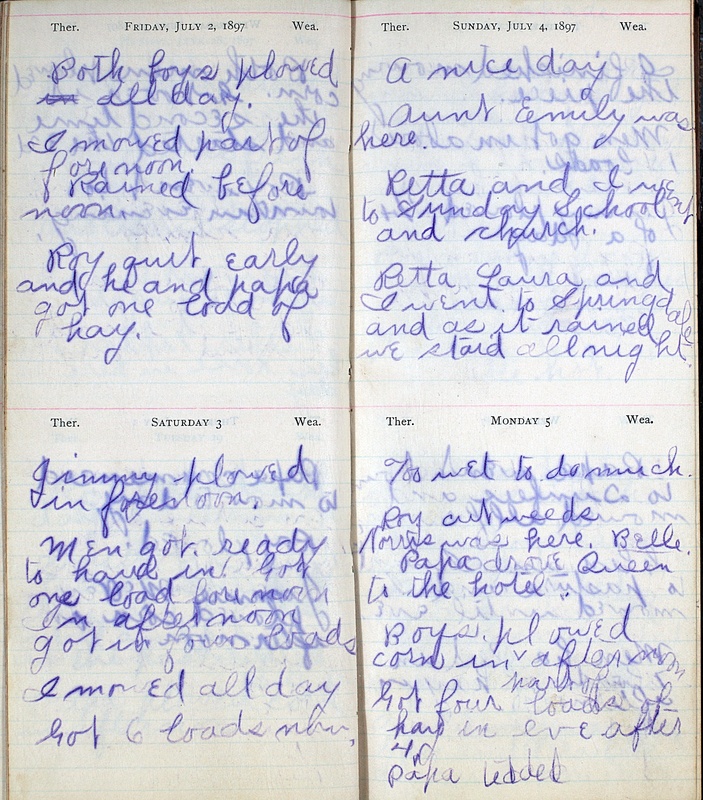 Ther. FRIDAY, JULY 2, 1897 Wea.
Both boys plowed
all day.
I mowed part of
forenoon
Rained before
noon
Roy quit early
and he and papa
got one lodd of
hay.
Ther. SATURDAY 3 Wea.
Jimmy plowed
in forenoon.
Men got ready
to haul in. Got
one load forenoon
In afternoon
got in four loads
I mowed all day
Got 6 loads now,
Ther. SUNDAY, JULY 4, 1897 Wea.
A nice day
Aunt Emily was
here.
Retta and I went
to Sunday School
and church.
Retta Laura and
I went to Springdale
and as it rained
we staid all night.
Ther. MONDAY 5 Wea.
Too wet to do much.
Roy cut weeds
Norris was here. Belle.
Papa drove Queen
to the hotel.
Boys plowed
corn in afternoon
part of
Got four loads of
hay in eve after
4
Papa tedded